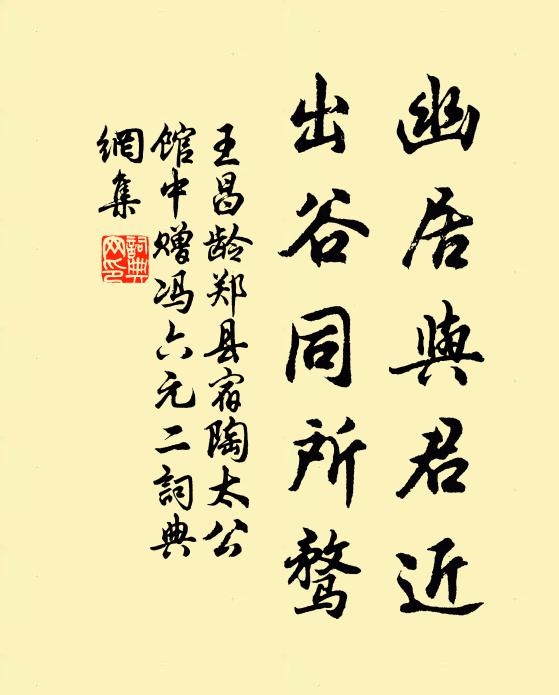 幽居與君近
出谷同所骛
王昌龄郑县宿陶太公
馆中赠冯六元二詞典
網集
詞典
网印